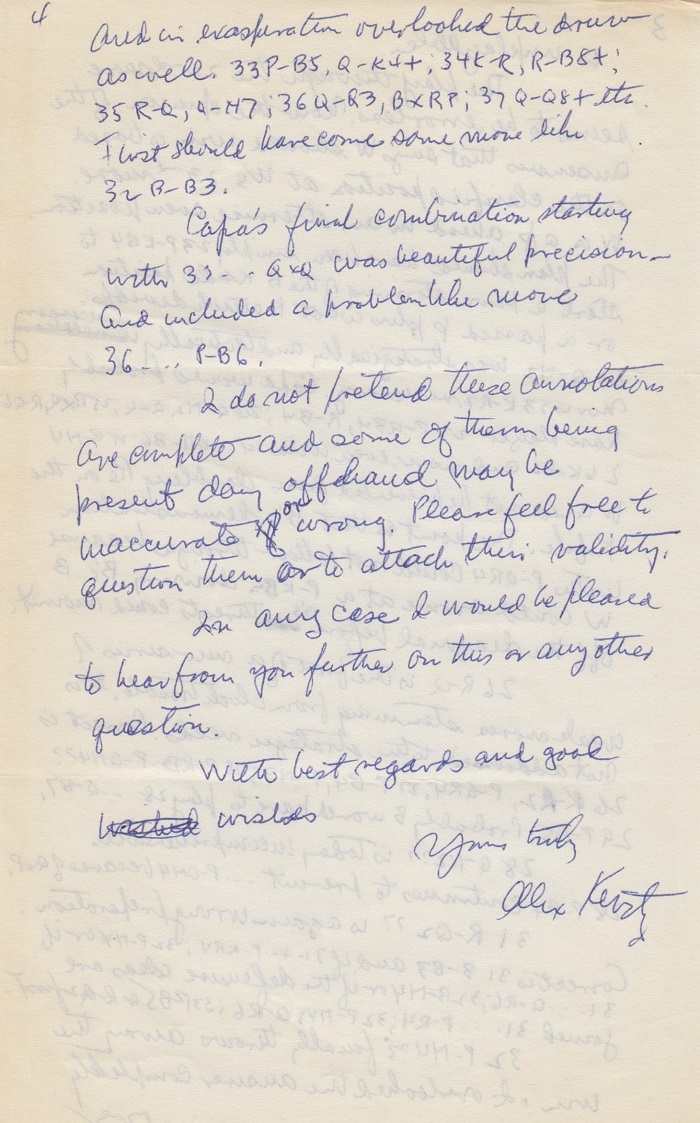 4
And in exasperation overlooked the draw
as well. 33 P-B5, Q-K4+; 34 K-R, R-B8+;
35 R-Q, Q-N7; 36 Q-R3, BxRP; 37 Q-Q8+ etc.
First should have come some move like
32 B-B3.
Capa's final combination starting
with 33 - .. QxQ was beautiful precision -
and included a problemlike move
36 - ... P-B6.
I do not pretend these annotations
are complete and some of them being
present day offhand may be
inaccurate or wrong. Please feel free to
question them or to attach their validity.
In any case I would be pleased
to hear from you further on this or any other
question.
With best regards and good
wishes
Yours truly
Alex Kevitz